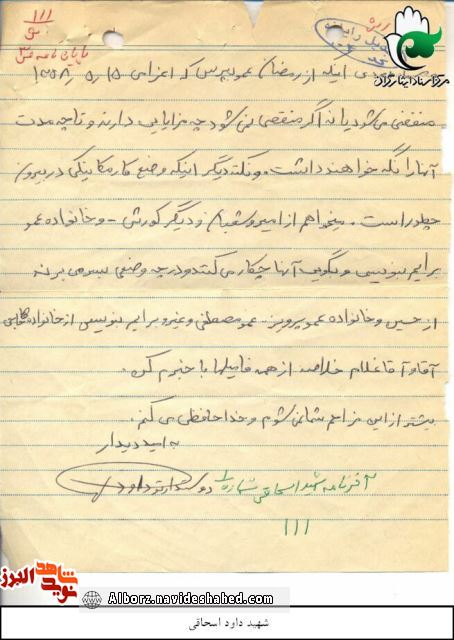 ۱۱۱
پایان نامه
مرکز اسناد ایثارگران
دی اینکه از رمضان عمو بپرس که اعزامی ۱۵ ر ۵ ر ۱۳۵۸
منقضی می‌شود یا نه اگر منقضی نمی‌شود چه مزایایی دارند و تا چه مدت
آنها را نگه خواهند داشت. و نکته دیگر اینکه وضع کار مکانیکی در بیرون
چطور است. میخواهم از امیر و شعبان و دیگر کورش - و خانواده عمو
برایم بنویسی و بگویی آنها چکار می‌کنند و در چه وضعی بسر می‌برند
از حسین و خانواده عمو پرویز - عمو مصطفی و غیره برایم بنویسی از خانواده
آقا و آقا غلام خلاصه از همه فامیلها با خبرم کن.
بیشتر از این مزاحم شما نمی شوم و خداحافظی می کنم.
به امید دیدار
دوستدار تو داود
آخر نامه شهید اسحاقی شماره ۱
۱۱۱
نوید شاهد البرز
Alborz.navideshahed.com
شهید داود اسحاقی